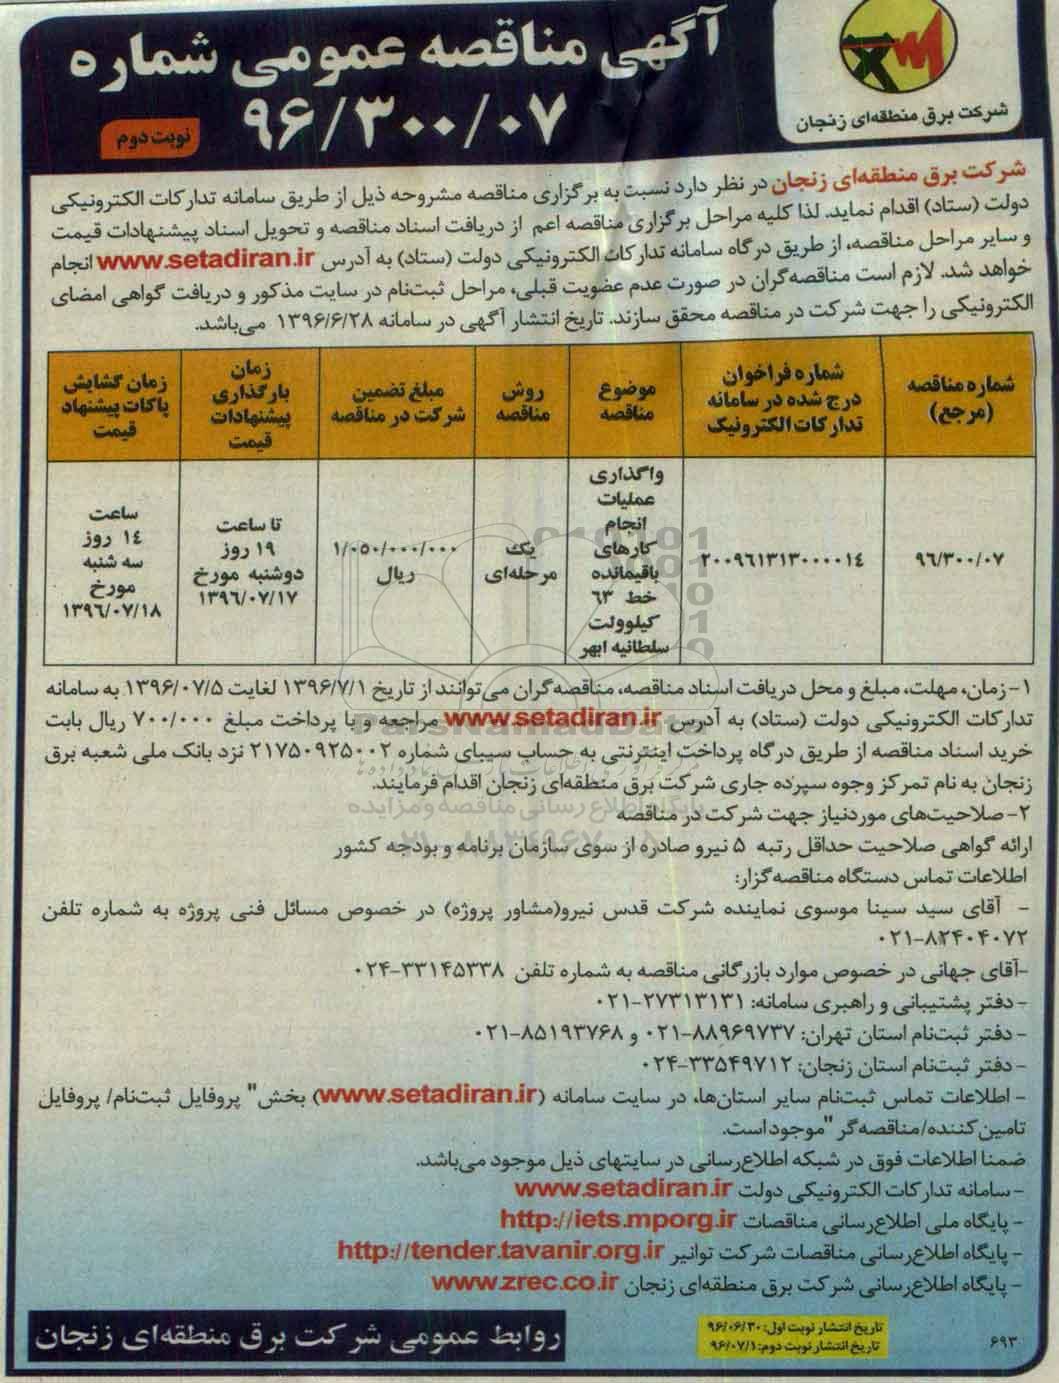 آگهی مناقصه عمومی شماره
۹۶/۳۰۰/۰۷
نوبت دوم
شرکت برق منطقه‌ای زنجان
شرکت برق منطقه‌ای زنجان در نظر دارد نسبت به برگزاری مناقصه مشروحه ذیل از طریق سامانه تدارکات الکترونیکی
دولت (ستاد) اقدام نماید. لذا کلیه مراحل برگزاری مناقصه اعم از دریافت اسناد مناقصه و تحویل اسناد پیشنهادات قیمت
و سایر مراحل مناقصه، از طریق درگاه سامانه تدارکات الکترونیکی دولت (ستاد) به آدرس www.setadiran.ir انجام
خواهد شد. لازم است مناقصه‌گران در صورت عدم عضویت قبلی، مراحل ثبت‌نام در سایت مذکور و دریافت گواهی امضای
الکترونیکی را جهت شرکت در مناقصه محقق سازند. تاریخ انتشار آگهی در سامانه ۱۳۹۶/۶/۲۸ می‌باشد.
شماره مناقصه
(مرجع)
شماره فراخوان
درج شده در سامانه
تدارکات الکترونیک
موضوع
مناقصه
روش
مناقصه
مبلغ تضمین
شرکت در مناقصه
زمان
بارگذاری
پیشنهادات
قیمت
زمان گشایش
پاکات پیشنهاد
قیمت
۹۶/۳۰۰/۰۷
۲۰۰۹۶۱۳۱۳۰۰۰۰۱۴
واگذاری
عملیات
انجام
کارهای
باقیمانده
خط ۶۳
کیلوولت
سلطانیه ابهر
یک
مرحله‌ای
۱/۰۵۰/۰۰۰/۰۰۰
ریال
تا ساعت
۱۹ روز
دوشنبه مورخ
۱۳۹۶/۰۷/۱۷
ساعت
۱۴ روز
سه شنبه
مورخ
۱۳۹۶/۰۷/۱۸
۱- زمان، مهلت، مبلغ و محل دریافت اسناد مناقصه، مناقصه‌گران می‌توانند از تاریخ ۱۳۹۶/۷/۱ لغایت ۱۳۹۶/۰۷/۵ به سامانه
تدارکات الکترونیکی دولت (ستاد) به آدرس www.setadiran.ir مراجعه و با پرداخت مبلغ ۷۰۰/۰۰۰ ریال بابت
خرید اسناد مناقصه از طریق درگاه پرداخت اینترنتی به حساب سیبای شماره ۲۱۷۵۰۹۲۵۰۰۲ نزد بانک ملی شعبه برق
زنجان به نام تمرکز وجوه سپرده جاری شرکت برق منطقه‌ای زنجان اقدام فرمایند.
۲- صلاحیت‌های موردنیاز جهت شرکت در مناقصه
ارائه گواهی صلاحیت حداقل رتبه ۵ نیرو صادره از سوی سازمان برنامه و بودجه کشور
اطلاعات تماس دستگاه مناقصه‌گزار:
- آقای سید سینا موسوی نماینده شرکت قدس نیرو(مشاور پروژه) در خصوص مسائل فنی پروژه به شماره تلفن
۰۲۱-۸۲۴۰۴۰۷۲
-آقای جهانی در خصوص موارد بازرگانی مناقصه به شماره تلفن ۰۲۴-۳۳۱۴۵۳۳۸
- دفتر پشتیبانی و راهبری سامانه: ۰۲۱-۲۷۳۱۳۱۳۱
- دفتر ثبت‌نام استان تهران: ۰۲۱-۸۸۹۶۹۷۳۷ و ۰۲۱-۸۵۱۹۳۷۶۸
- دفتر ثبت‌نام استان زنجان: ۰۲۴-۳۳۵۴۹۷۱۲
- اطلاعات تماس ثبت‌نام سایر استان‌ها، در سایت سامانه (www.setadiran.ir) بخش" پروفایل ثبت‌نام/ پروفایل
تامین‌کننده/مناقصه‌گر "موجود است.
ضمنا اطلاعات فوق در شبکه اطلاع‌رسانی در سایتهای ذیل موجود می‌باشد.
- سامانه تدارکات الکترونیکی دولت www.setadiran.ir
- پایگاه ملی اطلاع‌رسانی مناقصات http://iets.mporg.ir
- پایگاه اطلاع‌رسانی مناقصات شرکت توانیر http://tender.tavanir.org.ir
- پایگاه اطلاع‌رسانی شرکت برق منطقه‌ای زنجان www.zrec.co.ir
تاریخ انتشار نوبت اول: ۹۶/۰۶/۳۰
تاریخ انتشار نوبت دوم: ۹۶/۰۷/۱
۶۹۳
روابط عمومی شرکت برق منطقه‌ای زنجان
ParsNamadData
پایگاه اطلاع رسانی مناقصه و مزایده